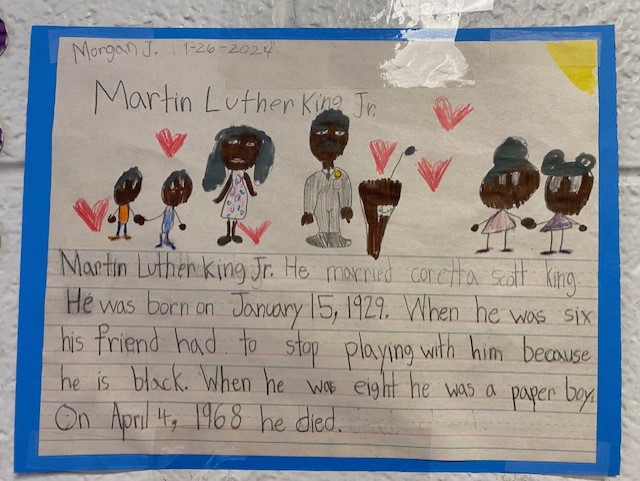 Morgan J. 1-26-2024
Martin Luther King Jr.
Martin Luther King Jr. He married coretta scott king
He was born on January 15, 1929. When he was six
his friend had to stop playing with him because
he is black. When he was eight he was a paper boy.
On April 4, 1968 he died.